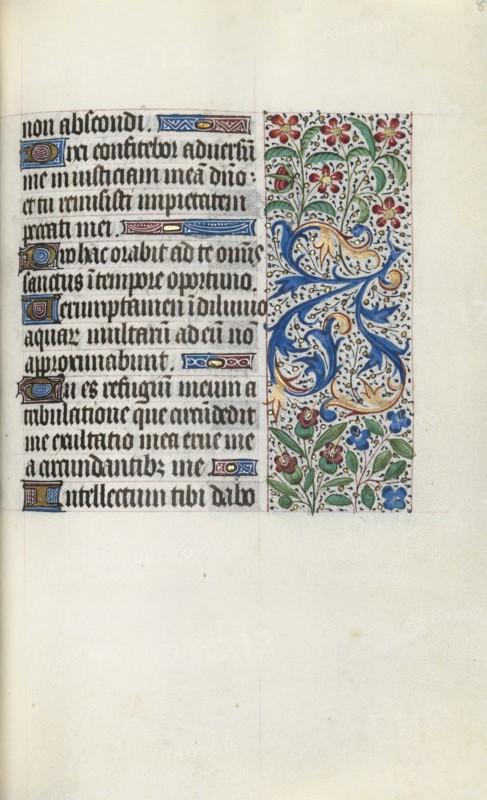 non abscondi.
Dixi confitebor adversũ
me iniusticiam meã dño:
et tu remisisti impietatem
peccati mei.
Pro hac orabit ad te omĩs
sanctus ĩ tempore oportuno.
Verumptamen ĩ diluuio
aquarꝝ multarũ ad eũ nõ
approximabunt.
Tu es refugiũ meum a
tribulatione que circũdedit
me exultatio mea erue me
a circundantibꝫ me
Intellectum tibi dabo